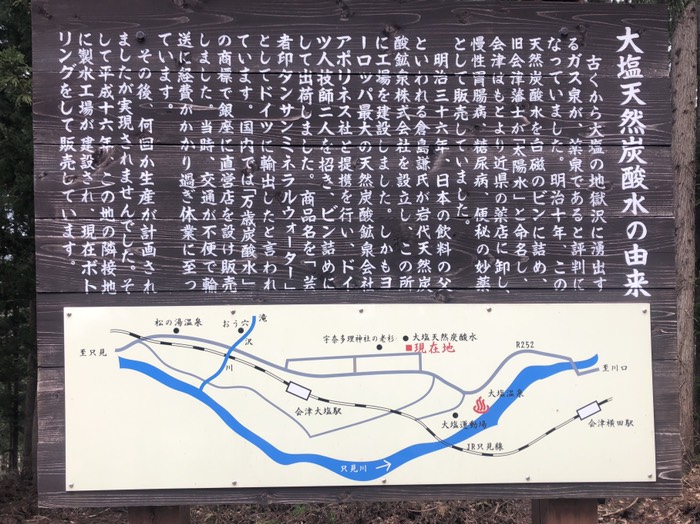 大塩天然炭酸水の由来
古くから大塩の地獄沢に湧出す
るガス泉が、薬泉であると評判に
なっていました。明治十年、この
天然炭酸水を白磁のビンに詰め、
旧会津藩士が「太陽水」と命名し、
会津はもとより近県の薬店に卸し、
慢性胃腸病、糖尿病、便秘の妙薬
として販売していました。
明治三十六年、日本の飲料の父
といわれる倉島謙氏が岩代天然炭
酸鉱泉株式会社を設立し、この所
に工場を建設しました。しかもヨ
ーロッパ最大の天然炭酸鉱泉会社
アポリネス社と提携を行い、ドイ
ツ人技師二人を招き、ビン詰めに
して出荷しました。商品名を「芸
者印タンサンミネラルウォーター」
としてドイツに輸出したと言われ
ています。国内では「万歳炭酸水」
の商標で銀座に直営店を設け販売
しました。当時、交通が不便で輸
送に経費がかかり過ぎ休業に至っ
ています。
その後、何回か生産が計画され
ましたが実現されませんでした。そ
して平成十六年、この地の隣接地
に製水工場が建設され、現在ボト
リングをして販売しています。
滝
沢
川
松の湯温泉
おう穴
宇奈多理神社の老杉
大塩天然炭酸水
現在地
R252
至只見
至川口
会津大塩駅
大塩温泉
大塩運動場
会津横田駅
JR只見線
只見川